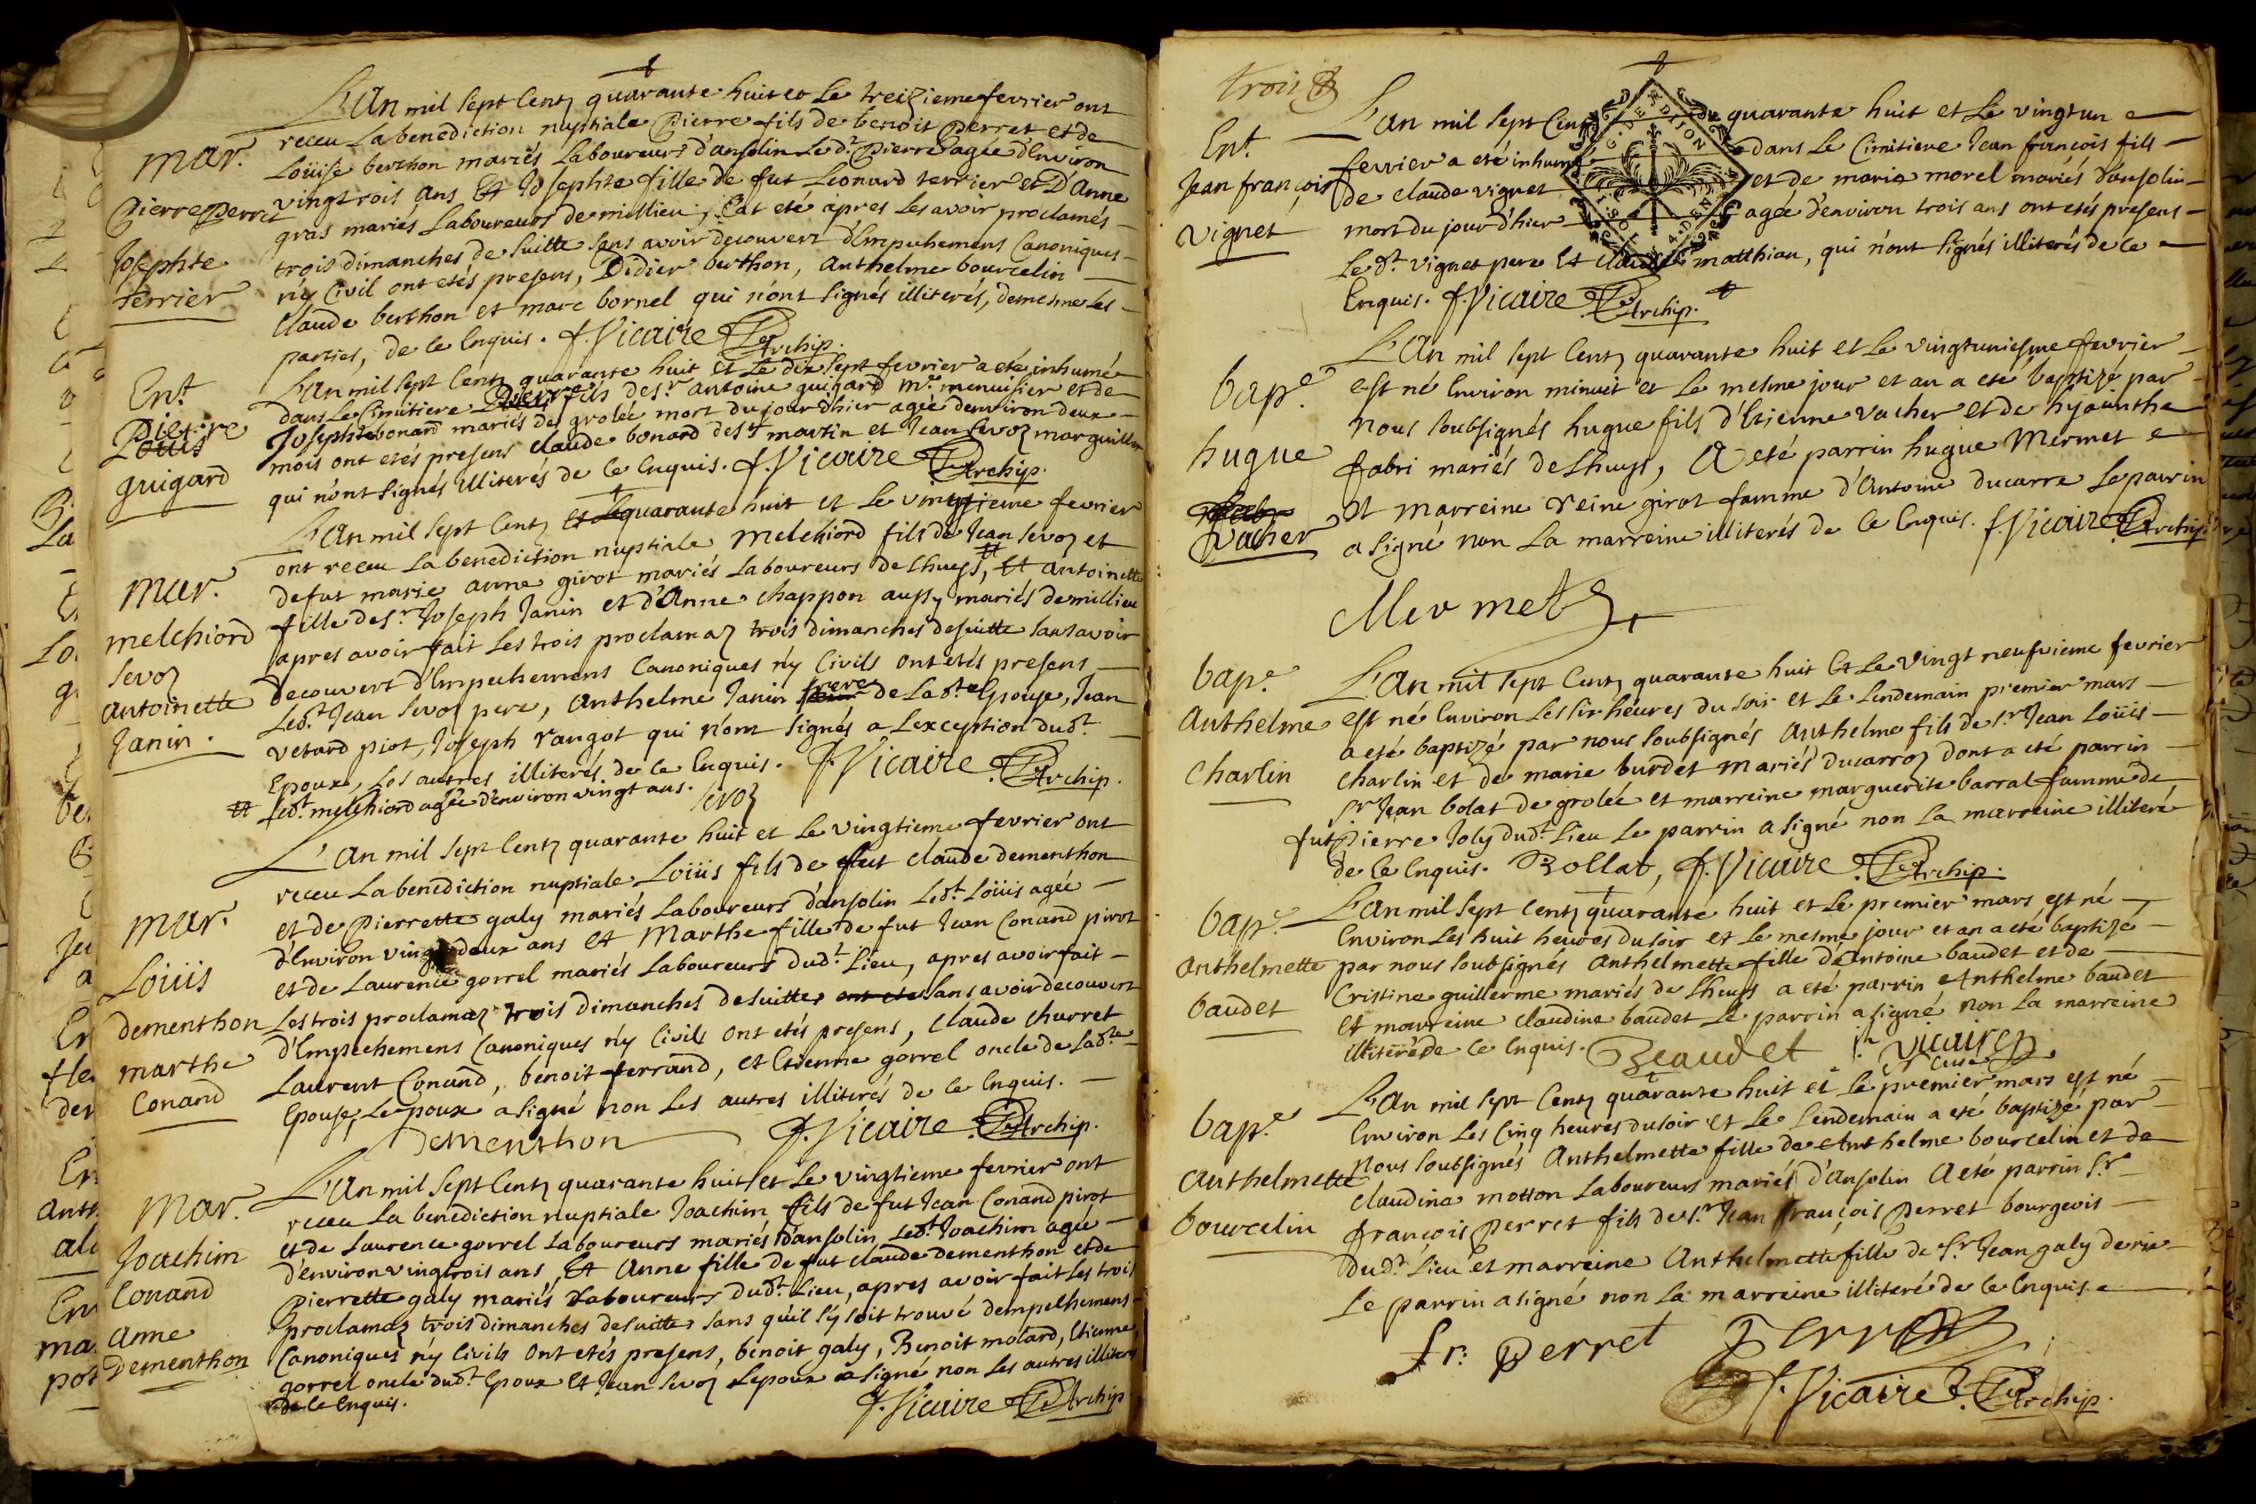 L'An mil sept Centz quarante huit et Le treizieme fevrier ont
mar.
receu La benediction nuptiale Pierre fils de benoit Perret et de
Loüise berthon mariés Laboureurs d'ansolin Ledt. Pierre agée d'Environ
Pierre Perret
vingtrois ans Et Josephte fille de fut Leonard terrier et D'Anne
gras mariés Laboureurs de millieu, Cat eté apres Les avoir proclamés
Josephte
trois dimanches de suitte sans avoir decouvert d'Empechemens Canoniques
terrier
n'y Civil ont etés presens, Didier berthon, Anthelme bourcelin
Claude berthon et marc bornel qui n'ont signés illiterés, demesme Les
parties, de Ce Enquis. f. Vicaire Archip.
Ent.
L'An mil sept Centz quarante huit Et Le dix sept fevrier a eté inhumé
Pierre
dans Le Cimitiere Pierre fils de Sr. antoine guigard me. menuisier et de
Louis
Josephte bonard mariés des grolée mort du jour d'hier agée d'environ deux
guigard
mois ont etés presens Claude bonard des St martin et Jean Sevoz marguillier
qui n'ont signés illiterés de Ce Enquis. f. Vicaire Archip.
L'An mil sept Centz et Le quarante huit et Le vingtieme fevrier
mar.
ont receu La benediction nuptiale Melchiord fils de Jean Sevoz et
de fut marie anne girot mariés Laboureurs de Lhuys, Et Antoinette
melchiord
fille de Sr. Joseph Janin et d'Anne Chappon aussy mariés de millieu
Sevoz
apres avoir fait Les trois proclamaz trois dimanches desuitte sans avoir
antoinette
decouvert d'Empechemens Canoniques n'y Civils ont etés presens
Janin.
Ledt. Jean Sevoz pere, Anthelme Janin frere de Ladte. Epouse, Jean
vetard piot, Joseph rangot qui n'ont signés a L'exception dudt.
Epoux, Les autres illiterés de Ce Enquis. f. Vicaire Archip.
Ledt. melchiord agée d'environ vingt ans. Sevoz
L'An mil sept Centz quarante huit et Le vingtieme fevrier ont
receu La benediction nuptiale Loüis fils de fut Claude dementhon
mar.
et de Pierrette galy mariés Laboureurs d'ansolin Ledt. Loüis agée
Loüis
d'Environ vingt deux ans Et Marthe fille de fut Jean Conand pirot
et de Laurence gorrel mariés Laboureurs dudt. Lieu, apres avoir fait
dementhon
Les trois proclamaz trois dimanches desuitte ont eté sans avoir decouvert
marthe
d'Empechemens Canoniques n'y Civils ont etés presens, Claude Charret
Conand
Laurent Conand, benoit ferrand, et Etienne gorrel oncle de Ladte.
Epouse, Lepoux a signé non Les autres illiterés de Ce Enquis.
Dementhon f. Vicaire Archip.
L'An mil sept Centz quarante huit et Le vingtieme fevrier ont
mar.
receu La benediction nuptiale Joachim fils de fut Jean Conand pirot
Joachim
et de Laurence gorrel Laboureurs mariés d'ansolin Ledt. Joachim agée
Conand
d'environ vingtrois ans, Et Anne fille de fut Claude dementhon et de
Pierrette galy mariés Laboureurs dudt. Lieu, apres avoir fait Les trois
Anne
proclamaz trois dimanches desuitte sans qu'il sy soit trouvé dempechemens
Dementhon
Canoniques n'y Civils ont etés presens, benoit galy, Benoit molard, Etienne
gorrel oncle dudt. Epoux Et Jean Sevoz Lepoux a signé non Les autres illiterés
de Ce Enquis. f. Vicaire Archip
trois
Ent.
L'An mil sept Centz quarante huit et Le vingtun
Jean françois
fevrier a eté inhumé dans Le Cimitiere Jean françois fils
de Claude vignet et de marie morel mariés d'ansolin
vignet
mort du jour d'hier agée d'environ trois ans ont etés presens
Le dt. vignet pere Et Claude matthian, qui n'ont signés illiterés de Ce
Enquis. f. Vicaire Archip.
L'An mil sept Centz quarante huit et Le vingtuniesme fevrier
bape.
est né Environ minuit et Le mesme jour et an a eté baptizé par
nous soubsignés hugue fils d'Etienne vacher et de hyacinthe
hugue
fabri mariés de Lhuys, A eté parrin hugue Mermet
et marreine reine girot famme d'Antoine ducarre Le parrin
Vacher
a signé non La marreine illiterés de Ce Enquis. f. Vicaire Archip.
Mermet
bape.
L'An mil sept Centz quarante huit Et Le vingt neufvieme fevrier
Anthelme
est né Environ Les six heures du soir et Le Lendemain premier mars
a eté baptizé par nous soubsignés Anthelme fils de Sr. Jean Loüis
Charlin
Charlin et de marie burdet mariés ducarroz dont a eté parrin
Sr. Jean bolat de grolée et marreine marguerite barral famme de
fut Pierre Joly dudt. Lieu Le parrin a signé non La marreine illiteré
de Ce Enquis. Bollat, f. Vicaire Archip.
bape.
L'An mil sept Centz quarante huit et Le premier mars est né
Environ Les huit heures du soir et Le mesme jour et an a eté baptizé
Anthelmette
par nous soubsignés Anthelmette fille de Antoine baudet et de
baudet
Cristine guillerme mariés de Lhuys a eté parrin Anthelme baudet
Et marreine Claudine baudet Le parrin a signé non La marreine
illiteré de Ce Enquis. Beaudet Vicaire
L'An mil sept Centz quarante huit et Le premier mars est né
bape.
Environ Les Cinq heures du soir et Le Lendemain a eté baptizé par
Anthelmette
nous soubsignés Anthelmette fille de Anthelme bourcelin et de
Claudine motton Laboureurs mariés d'Ansolin A eté parrin Sr.
bourcelin
françois Perret fils de Sr. Jean françois Perret bourgeois
dudt. Lieu et marreine Anthelmette fille de Sr. Jean galy derie
Le parrin a signé non La marreine illiteré de Ce Enquis.
fr: Perret Perret
f. Vicaire Archip.